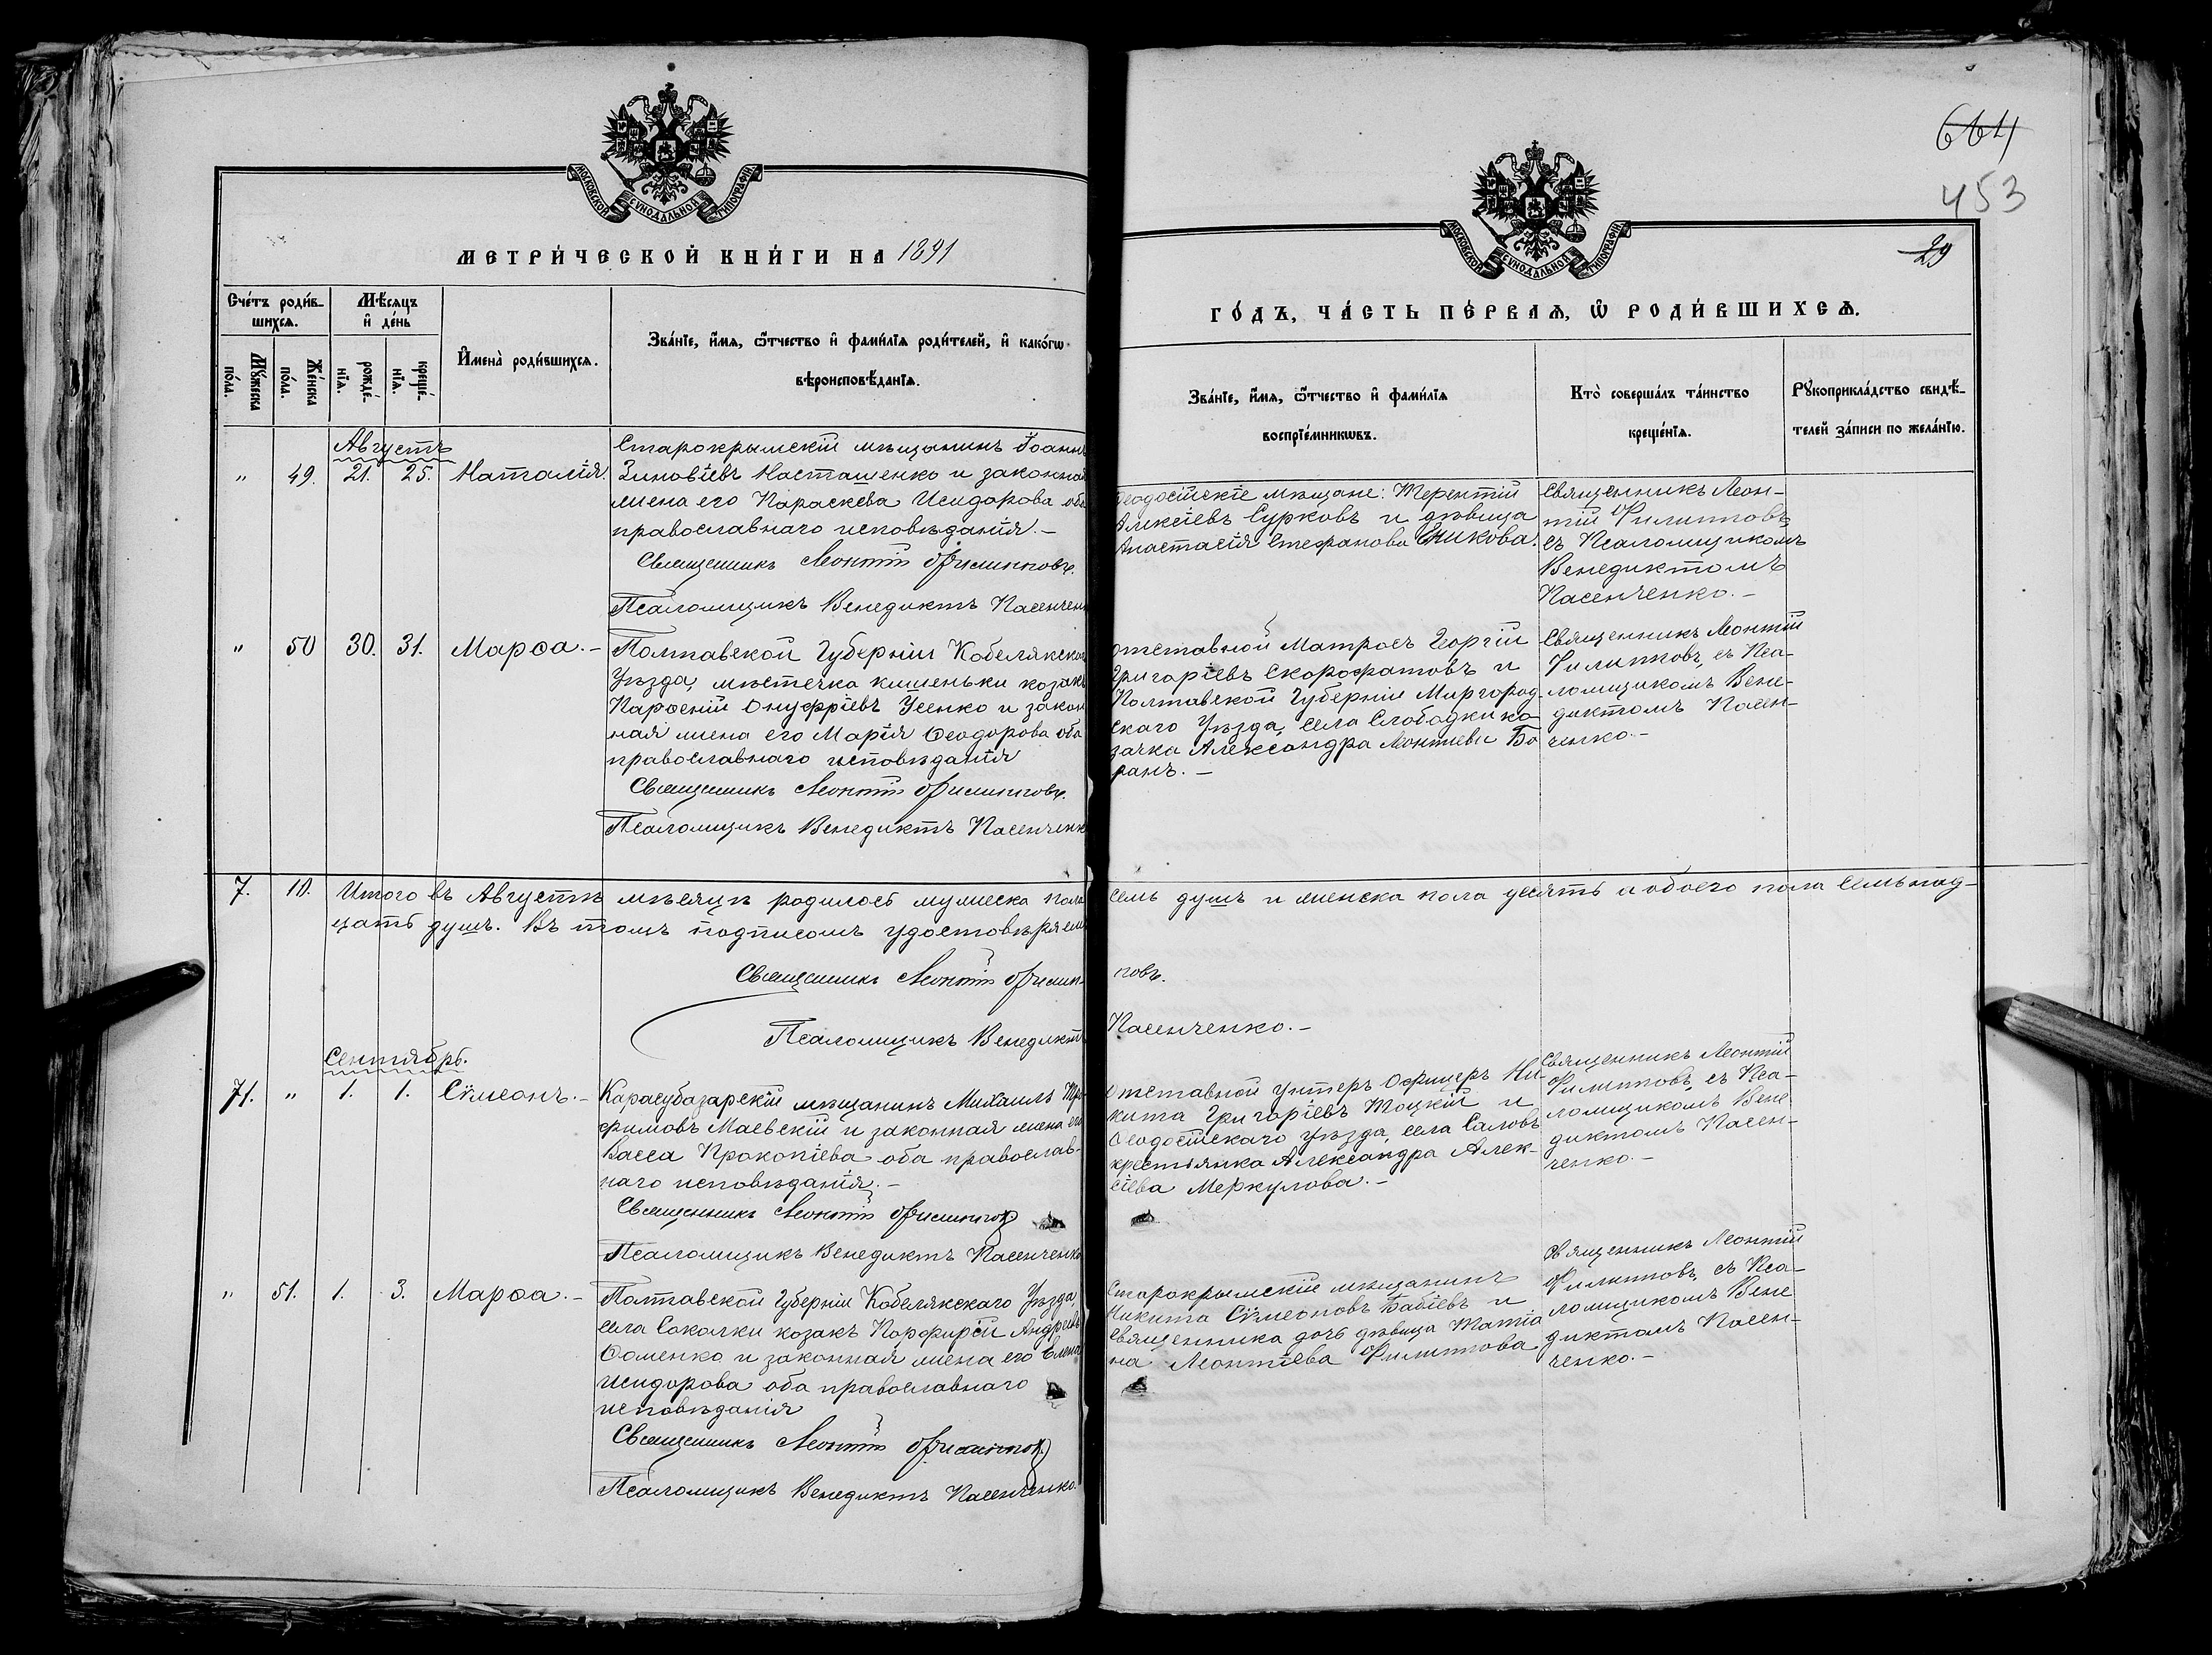 664
453
29
МОСКОВСКОЙ СѴНОДАЛЬНОЙ ТИПОГРАФІИ
МЕТРИ́ЧЕСКОЙ КНИ́ГИ НА 1891
МОСКОВСКОЙ СѴНОДАЛЬНОЙ ТИПОГРАФІИ
ГО́ДЪ, ЧА́СТЬ ПЕ́РВАѦ, Ѡ РОДИ́ВШИХСѦ.
Сче́тъ роди́в-
шихсѧ.
Мѣ́сяцъ
и҆ де́нь
Мꙋ́жеска
по́ла.
Же́нска
по́ла.
рожде́-
нїѧ.
креще́-
нїѧ.
И҆мена̀ роди́вшихсѧ.
Зва́нїе, и҆́мѧ, ѻ҆́тчество и҆ фами́лїѧ роди́телей, и҆ како́гѡ
вѣроисповѣ́данїѧ.
Зва́нїе, и҆́мѧ, ѻ҆́тчество и҆ фами́лїѧ
воспрїе́мникѡвъ.
Кто̀ соверша́лъ та́инство
креще́нїѧ.
Рꙋкоприкла́дство свидѣ́-
телей за́писи по жела́нїю.
Августъ
" 49. 21. 25. Наталія.
Старокрымскій мѣщанинъ Іоаннъ
Зиновіевъ Насташенко и законная
жена его Параскева Исидорова оба
православнаго исповѣданія.-
Священникъ Леонтій Филипповъ.
Псаломщикъ Венедиктъ Пасенченко
Ѳеодосійскіе мѣщане: Терентій
Алексіевъ Сурковъ и дѣвица
Анастасія Стефанова
Священникъ Леон-
тій Филипповъ,
съ Псаломщикомъ
Венедиктомъ
Пасенченко.-
" 50 30. 31. Марѳа.-
Полтавской Губерніи Кобелякскаго
Уѣзда, мѣстечка Кишеньки козакъ
Парѳеній Онуфріевъ Усенко и закон
ная жена его Марія Ѳеодорова оба
православнаго исповѣданія
Священникъ Леонтій Филипповъ.
Псаломщикъ Венедиктъ Пасенченко
Отставной Матросъ Георгій
Григоріевъ Скорофатовъ и
Полтавской Губерніи Миргород-
скаго Уѣзда, села Слободки ка-
зачка Александра Леонтіева Ба
ранъ.-
Священникъ Леонтій
Филипповъ, съ Пса-
ломщикомъ Вене-
диктомъ Пасен-
ченко.-
7. 10. Итого въ Августѣ мѣсяцѣ родилось мужеска пола семь душъ и женска пола десять а обоего пола семьнад-
цать душъ. Въ томъ подписомъ удостовѣряемъ
Священникъ Леонтій Филип-
повъ.
Псаломщикъ Венедиктъ
Пасенченко.-
Сентябрь.
71. " 1. 1. Сѷмеонъ.-
Карасубазарскій мѣщанинъ Михаилъ Тро
фимовъ Маевскій и законная жена его
Васса Прокопіева оба православ-
наго исповѣданія.-
Священникъ Леонтій Филипповъ
Псаломщикъ Венедиктъ Пасенченко
Отставной Унтеръ Офицеръ Ни-
кита Григоріевъ Тоцкій и
Ѳеодосійскаго уѣзда, села Саловъ
крестьянка Александра Алек-
сіева Меркулова.-
Священникъ Леонтій
Филипповъ, съ Пса-
ломщикомъ Вене
диктомъ Пасен-
ченко.-
" 51. 1. 3. Марѳа.-
Полтавской Губерніи Кобелякскаго Уѣзда,
села Соколки козакъ Порфирій Андреевъ
Ѳоменко и законная жена его Елена
Исидорова оба православнаго
исповѣданія
Священникъ Леонтій Филипповъ
Псаломщикъ Венедиктъ Пасенченко.
Старокрымскій мѣщанинъ
Никита Сѷмеоновъ Бабіевъ и
Священника дочь дѣвица Татіа
на Леонтіева Филиппова
Священникъ Леонтій
Филипповъ, съ Пса-
ломщикомъ Вене
диктомъ Пасен-
ченко.-